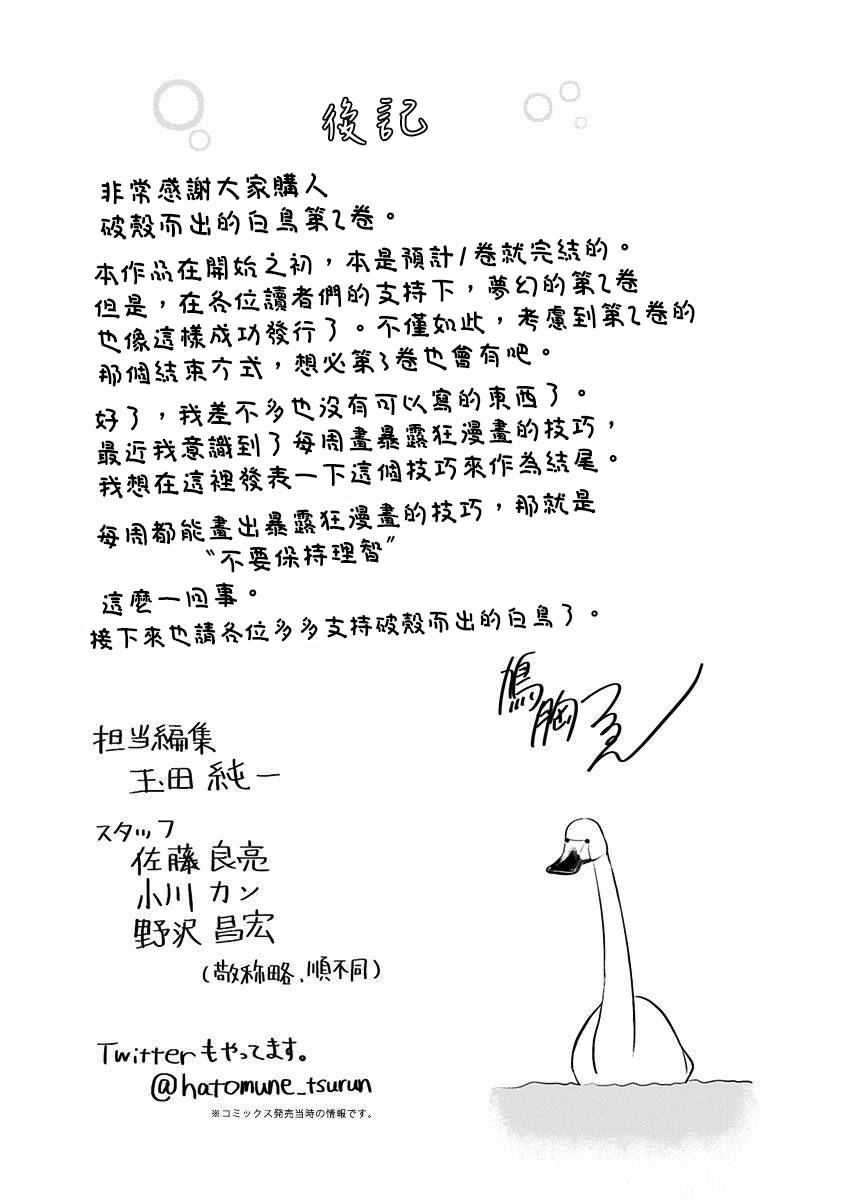 後記
非常感謝大家購入
破殼而出的白鳥第2卷。
本作品在開始之初，本是預計1卷就完結的。
但是，在各位讀者們的支持下，夢幻的第2卷
也像這樣成功發行了。不僅如此，考慮到第2卷的
那個結束方式，想必第3卷也會有吧。
好了，我差不多也沒有可以寫的東西了。
最近我意識到了每周畫暴露狂漫畫的技巧，
我想在這裡發表一下這個技巧來作為結尾。
每周都能畫出暴露狂漫畫的技巧，那就是
“不要保持理智”
這麼一回事。
接下來也請各位多多支持破殼而出的白鳥了。
鳩胸つるん
担当編集
玉田 純一
スタッフ
佐藤 良亮
小川 カン
野沢 昌宏
(敬称略、順不同)
Twitterもやってます。
@hatomune_tsurun
※コミックス発売当時の情報です。